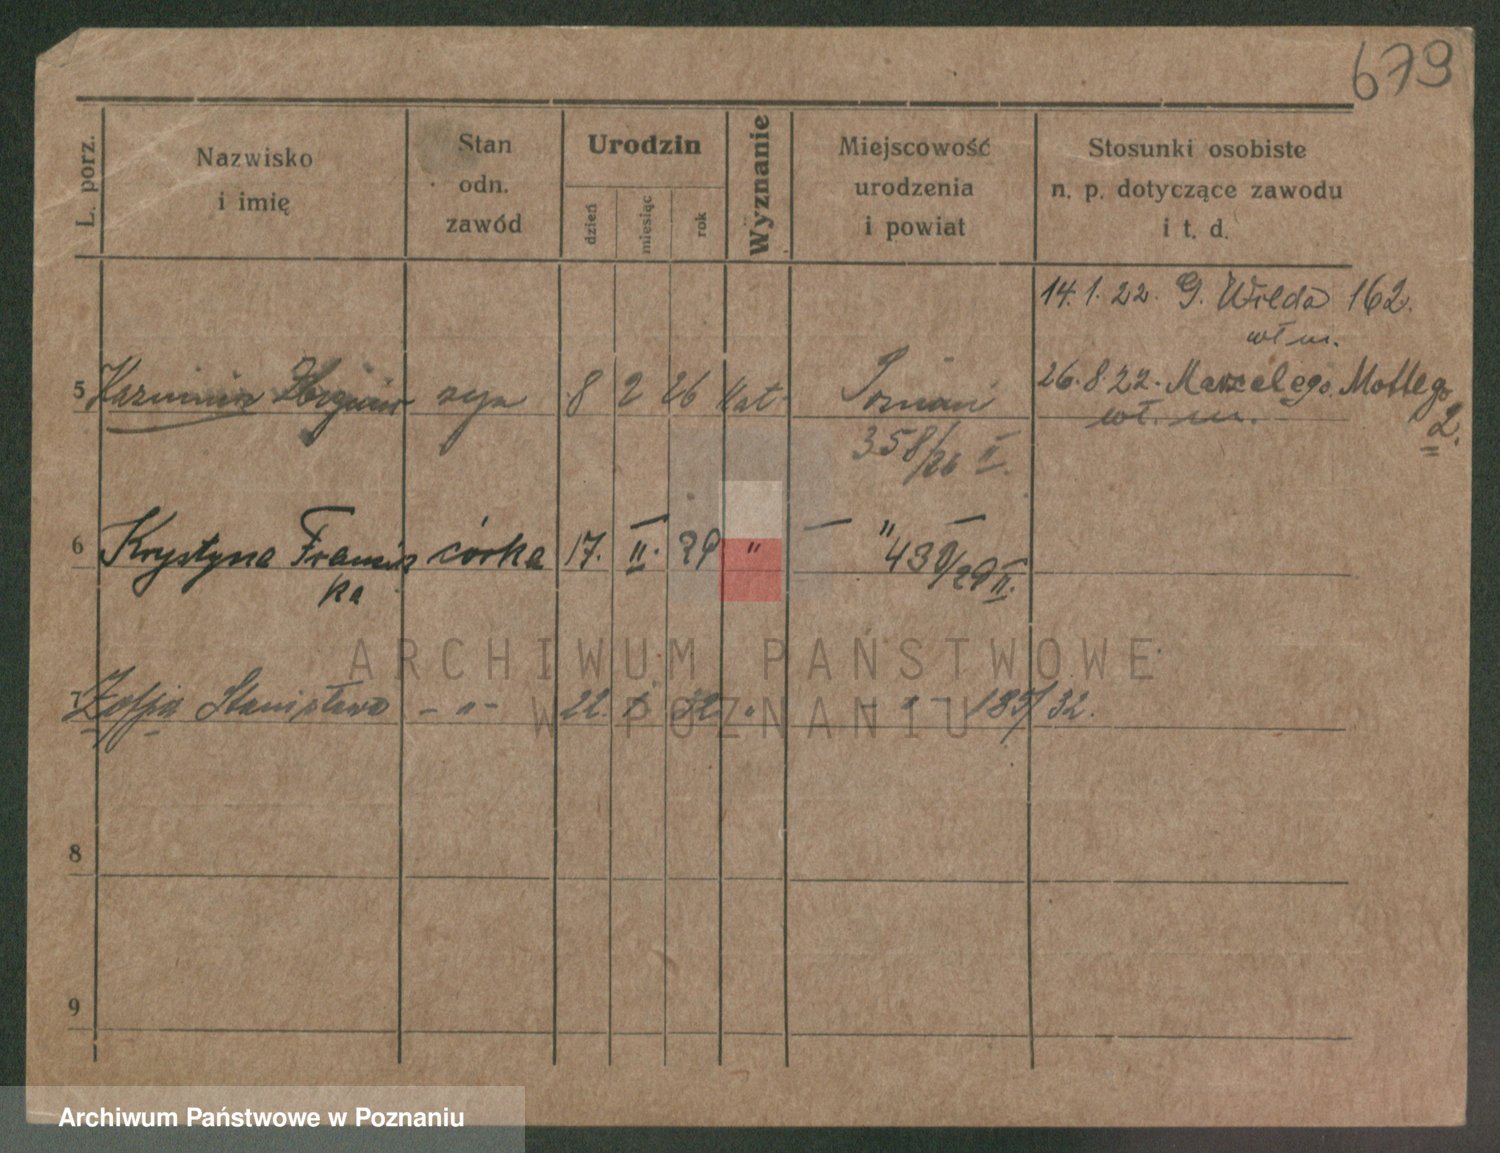 679
L. porz.
Nazwisko
i imię
Stan
odn.
zawód
Urodzin
dzień
miesiąc
rok
Wyznanie
Miejscowość
urodzenia
i powiat
Stosunki osobiste
n. p. dotyczące zawodu
i t. d.
14. 1. 22. G. Wilda 162.
wł m.
26. 8. 22. Marcelego Mottego
2.
wł. m.
5 Kazimierz syn 8 2 26 Kat Poznań
358/26 II.
6 Krystyna Francisz córka 17. II. 29 " — " —
ka
439/29 II.
7 Zofja Stanisława - " - 22. 32 " - " - 185/32.
8
9
ARCHIWUM PAŃSTWOWE
W POZNANIU
Archiwum Państwowe w Poznaniu